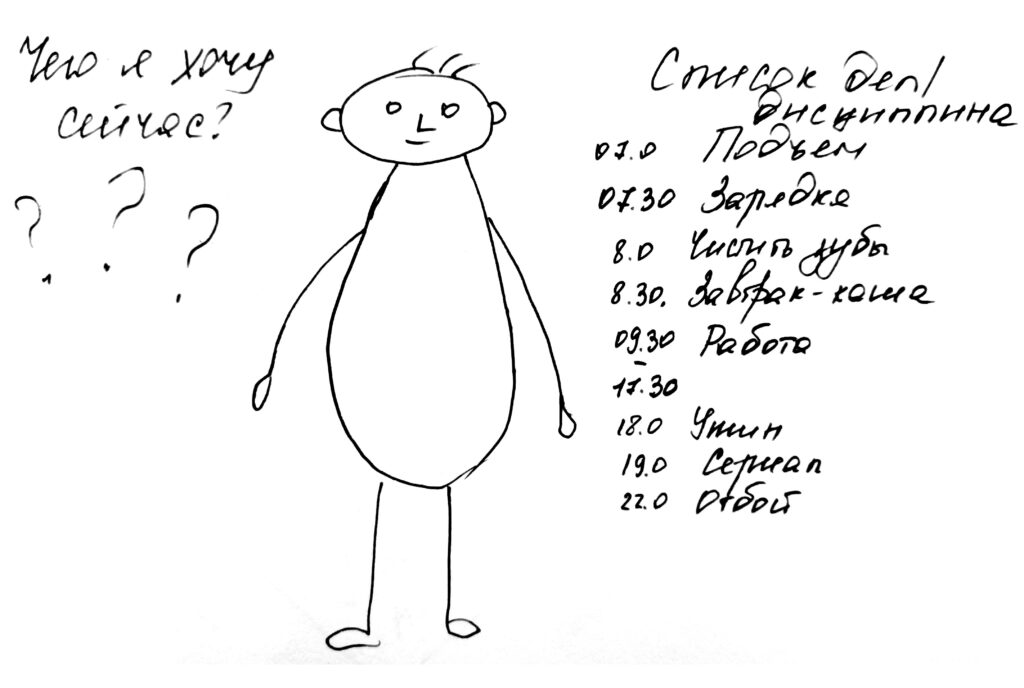 Чего я хочу
сейчас?
? ? ?
Список дел/
дисциплина
07.0 Подъем
07.30 Зарядка
8.0 Чистить зубы
8.30. Завтрак - каша
09.30 Работа
-
17.30
18.0 Ужин
19.0 Сериал
22.0 Отбой